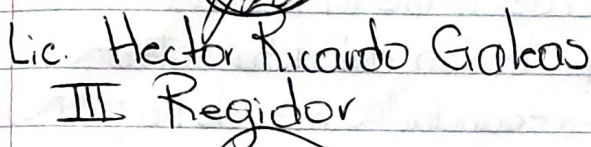 Lic. Hector Ricardo Galeas
III Regidor